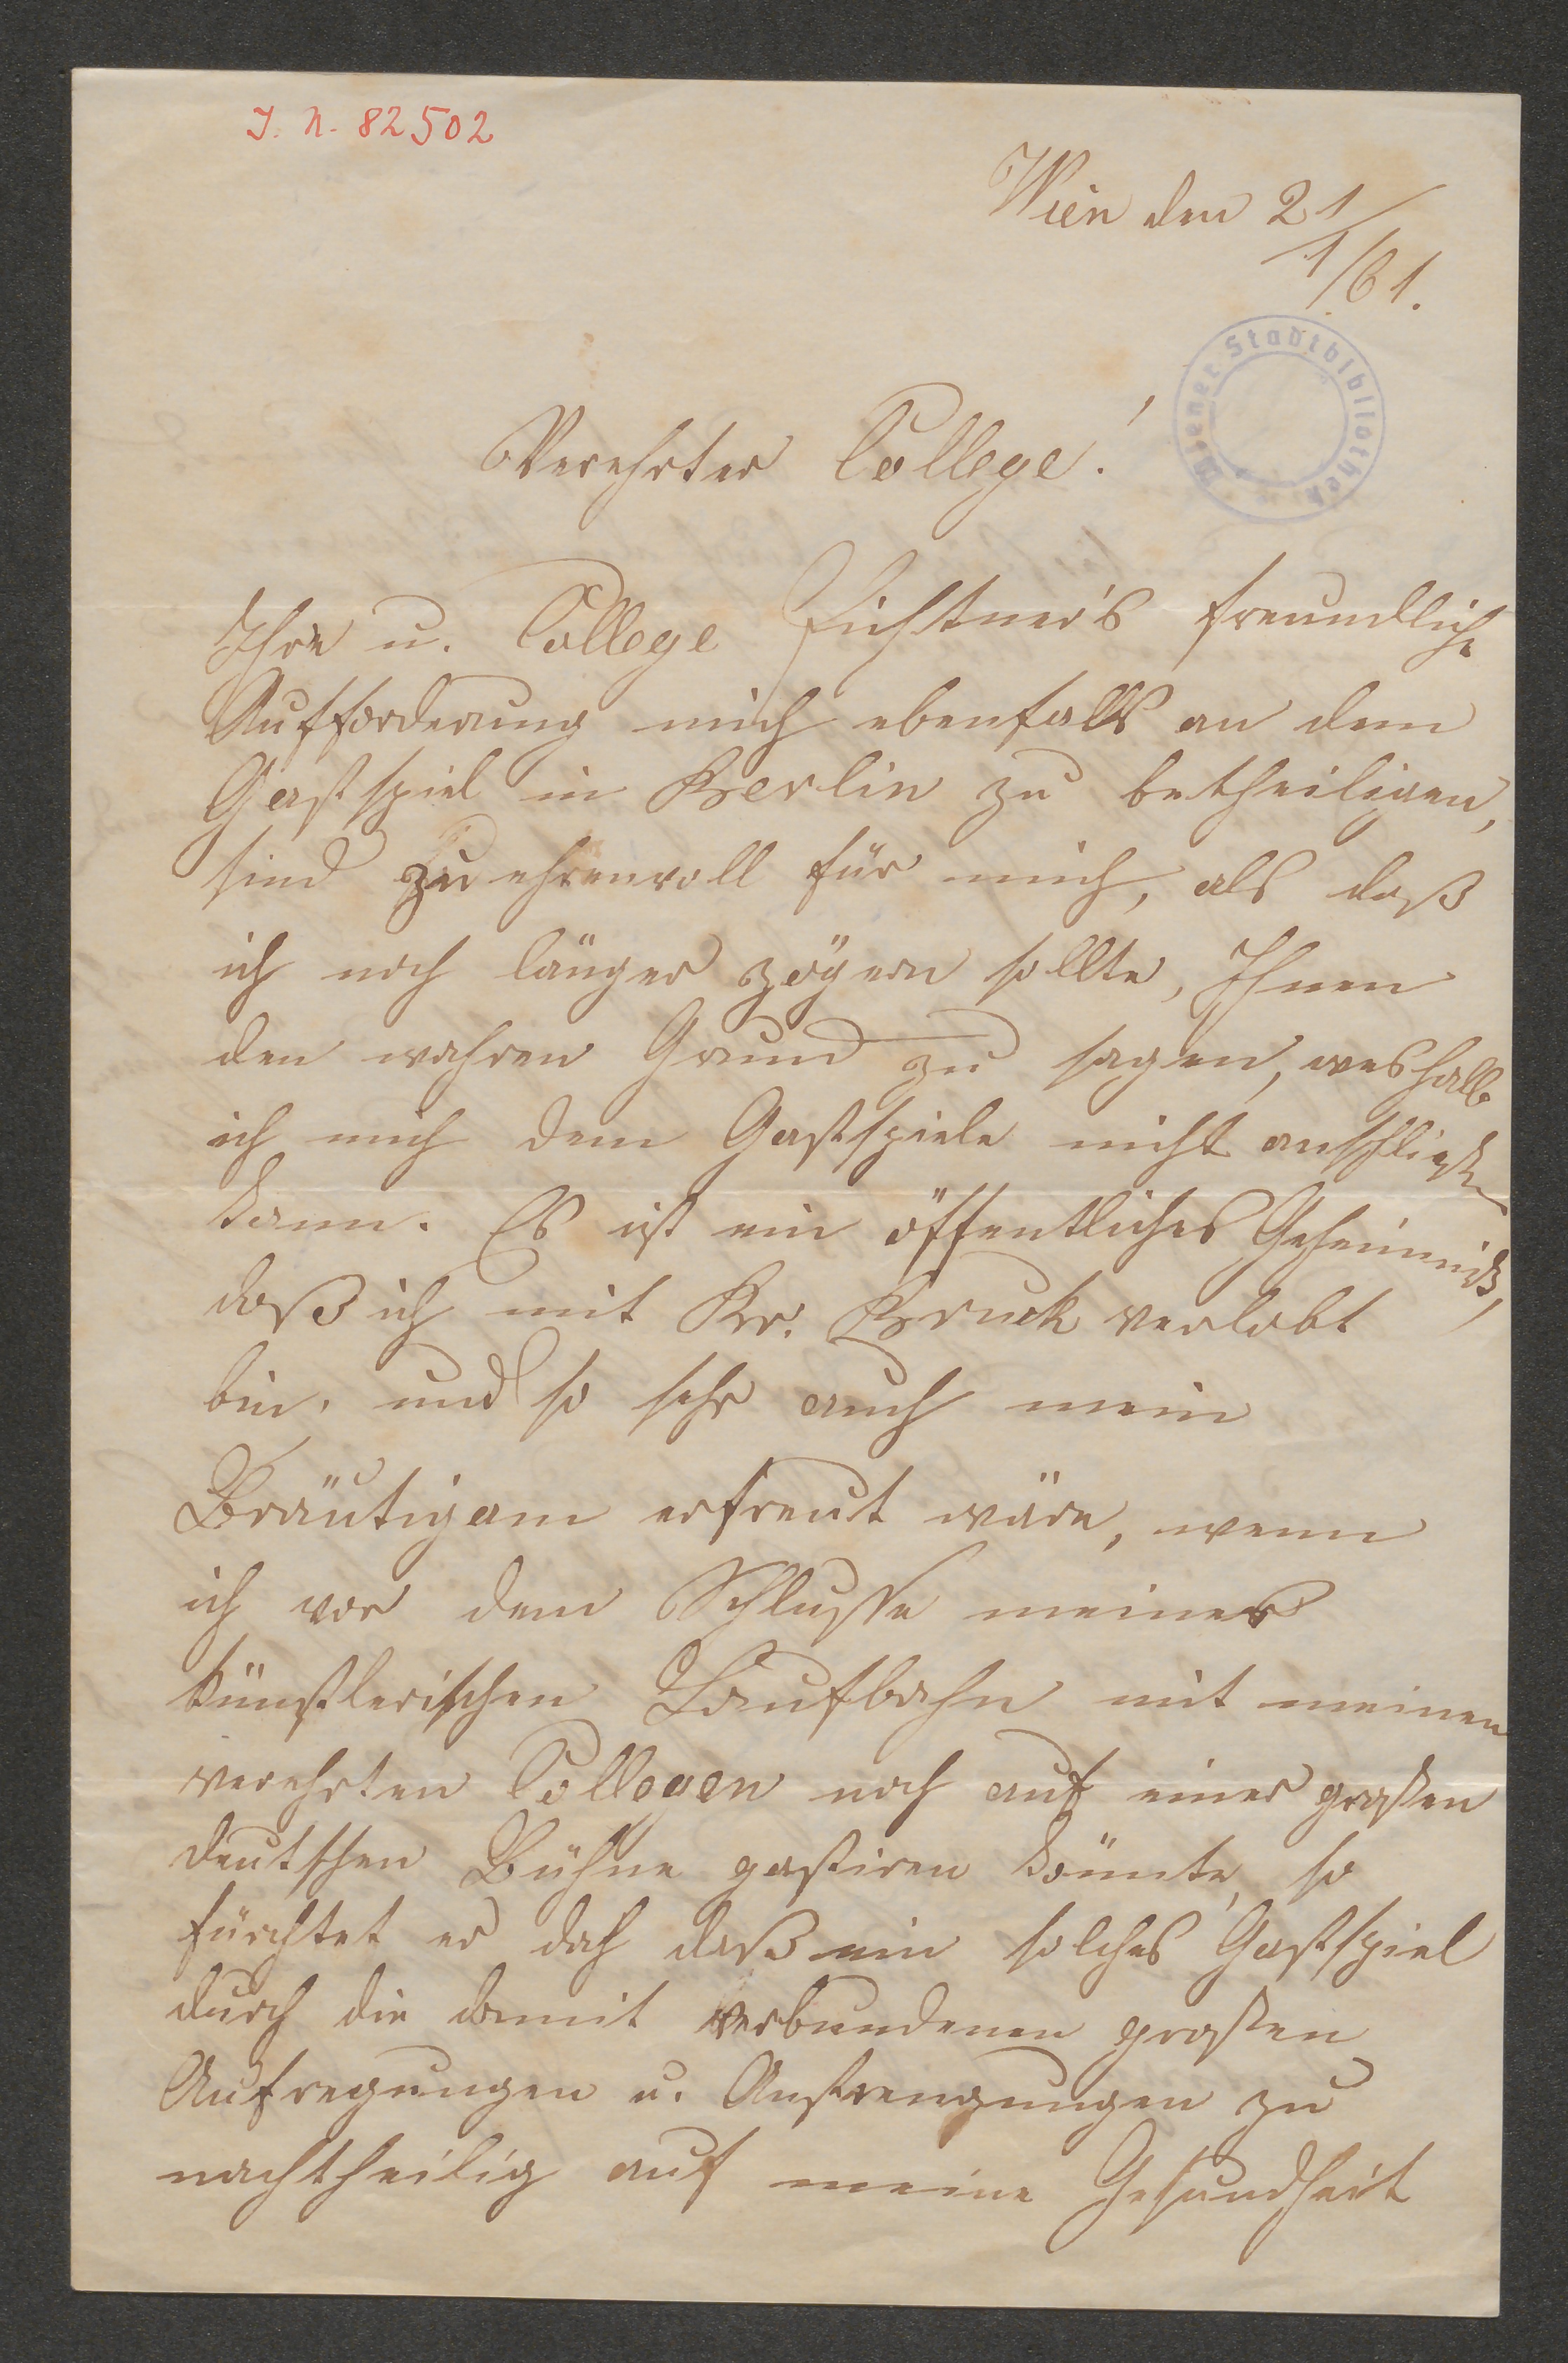 I. N. 82502
Wien den 21/1/61.
Wiener Stadtbibliothek
Verehrter College!
Ihre u. College Fichtner's freundliche
Aufforderung mich ebenfalls an dem
Gastspiel in Berlin zu betheiligen,
sind zu ehrenvoll für mich, als daß
ich noch länger zögern sollte, Ihnen
den wahren Grund zu sagen, weshalb
ich mich dem Gastspiele nicht anschließen
kann. Es ist ein öffentliches Geheimniß,
daß ich mit Br. Bruck verlobt
bin, und so sehr auch mein
Bräutigam erfreut wäre, wenn
ich vor dem Schlusse meiner
künstlerischen Laufbahn mit meinen
verehrten Collegen noch auf einer großen
deutschen Bühne gastiren könnte, so
fürchtet er doch daß ein solches Gastspiel
durch die damit verbundenen großen
Aufregungen u. Anstrengungen zu
nachtheilig auf meine Gesundheit